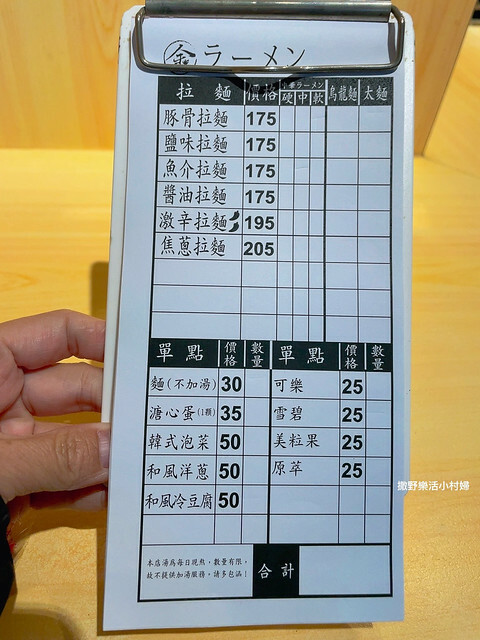 金ラーメン
拉麵 價格 中華ラーメン 硬 中 軟 烏龍麵 太麵
豚骨拉麵 175
鹽味拉麵 175
魚介拉麵 175
醬油拉麵 175
激辛拉麵 195
焦蔥拉麵 205
單點 價格 數量 單點 價格 數量
麵(不加湯) 30 可樂 25
溏心蛋(1顆) 35 雪碧 25
韓式泡菜 50 美粒果 25
和風洋蔥 50 原萃 25
和風冷豆腐 50
本店湯為每日現熬，數量有限，
故不提供加湯服務，請多包涵！
合計
撒野樂活小村婦